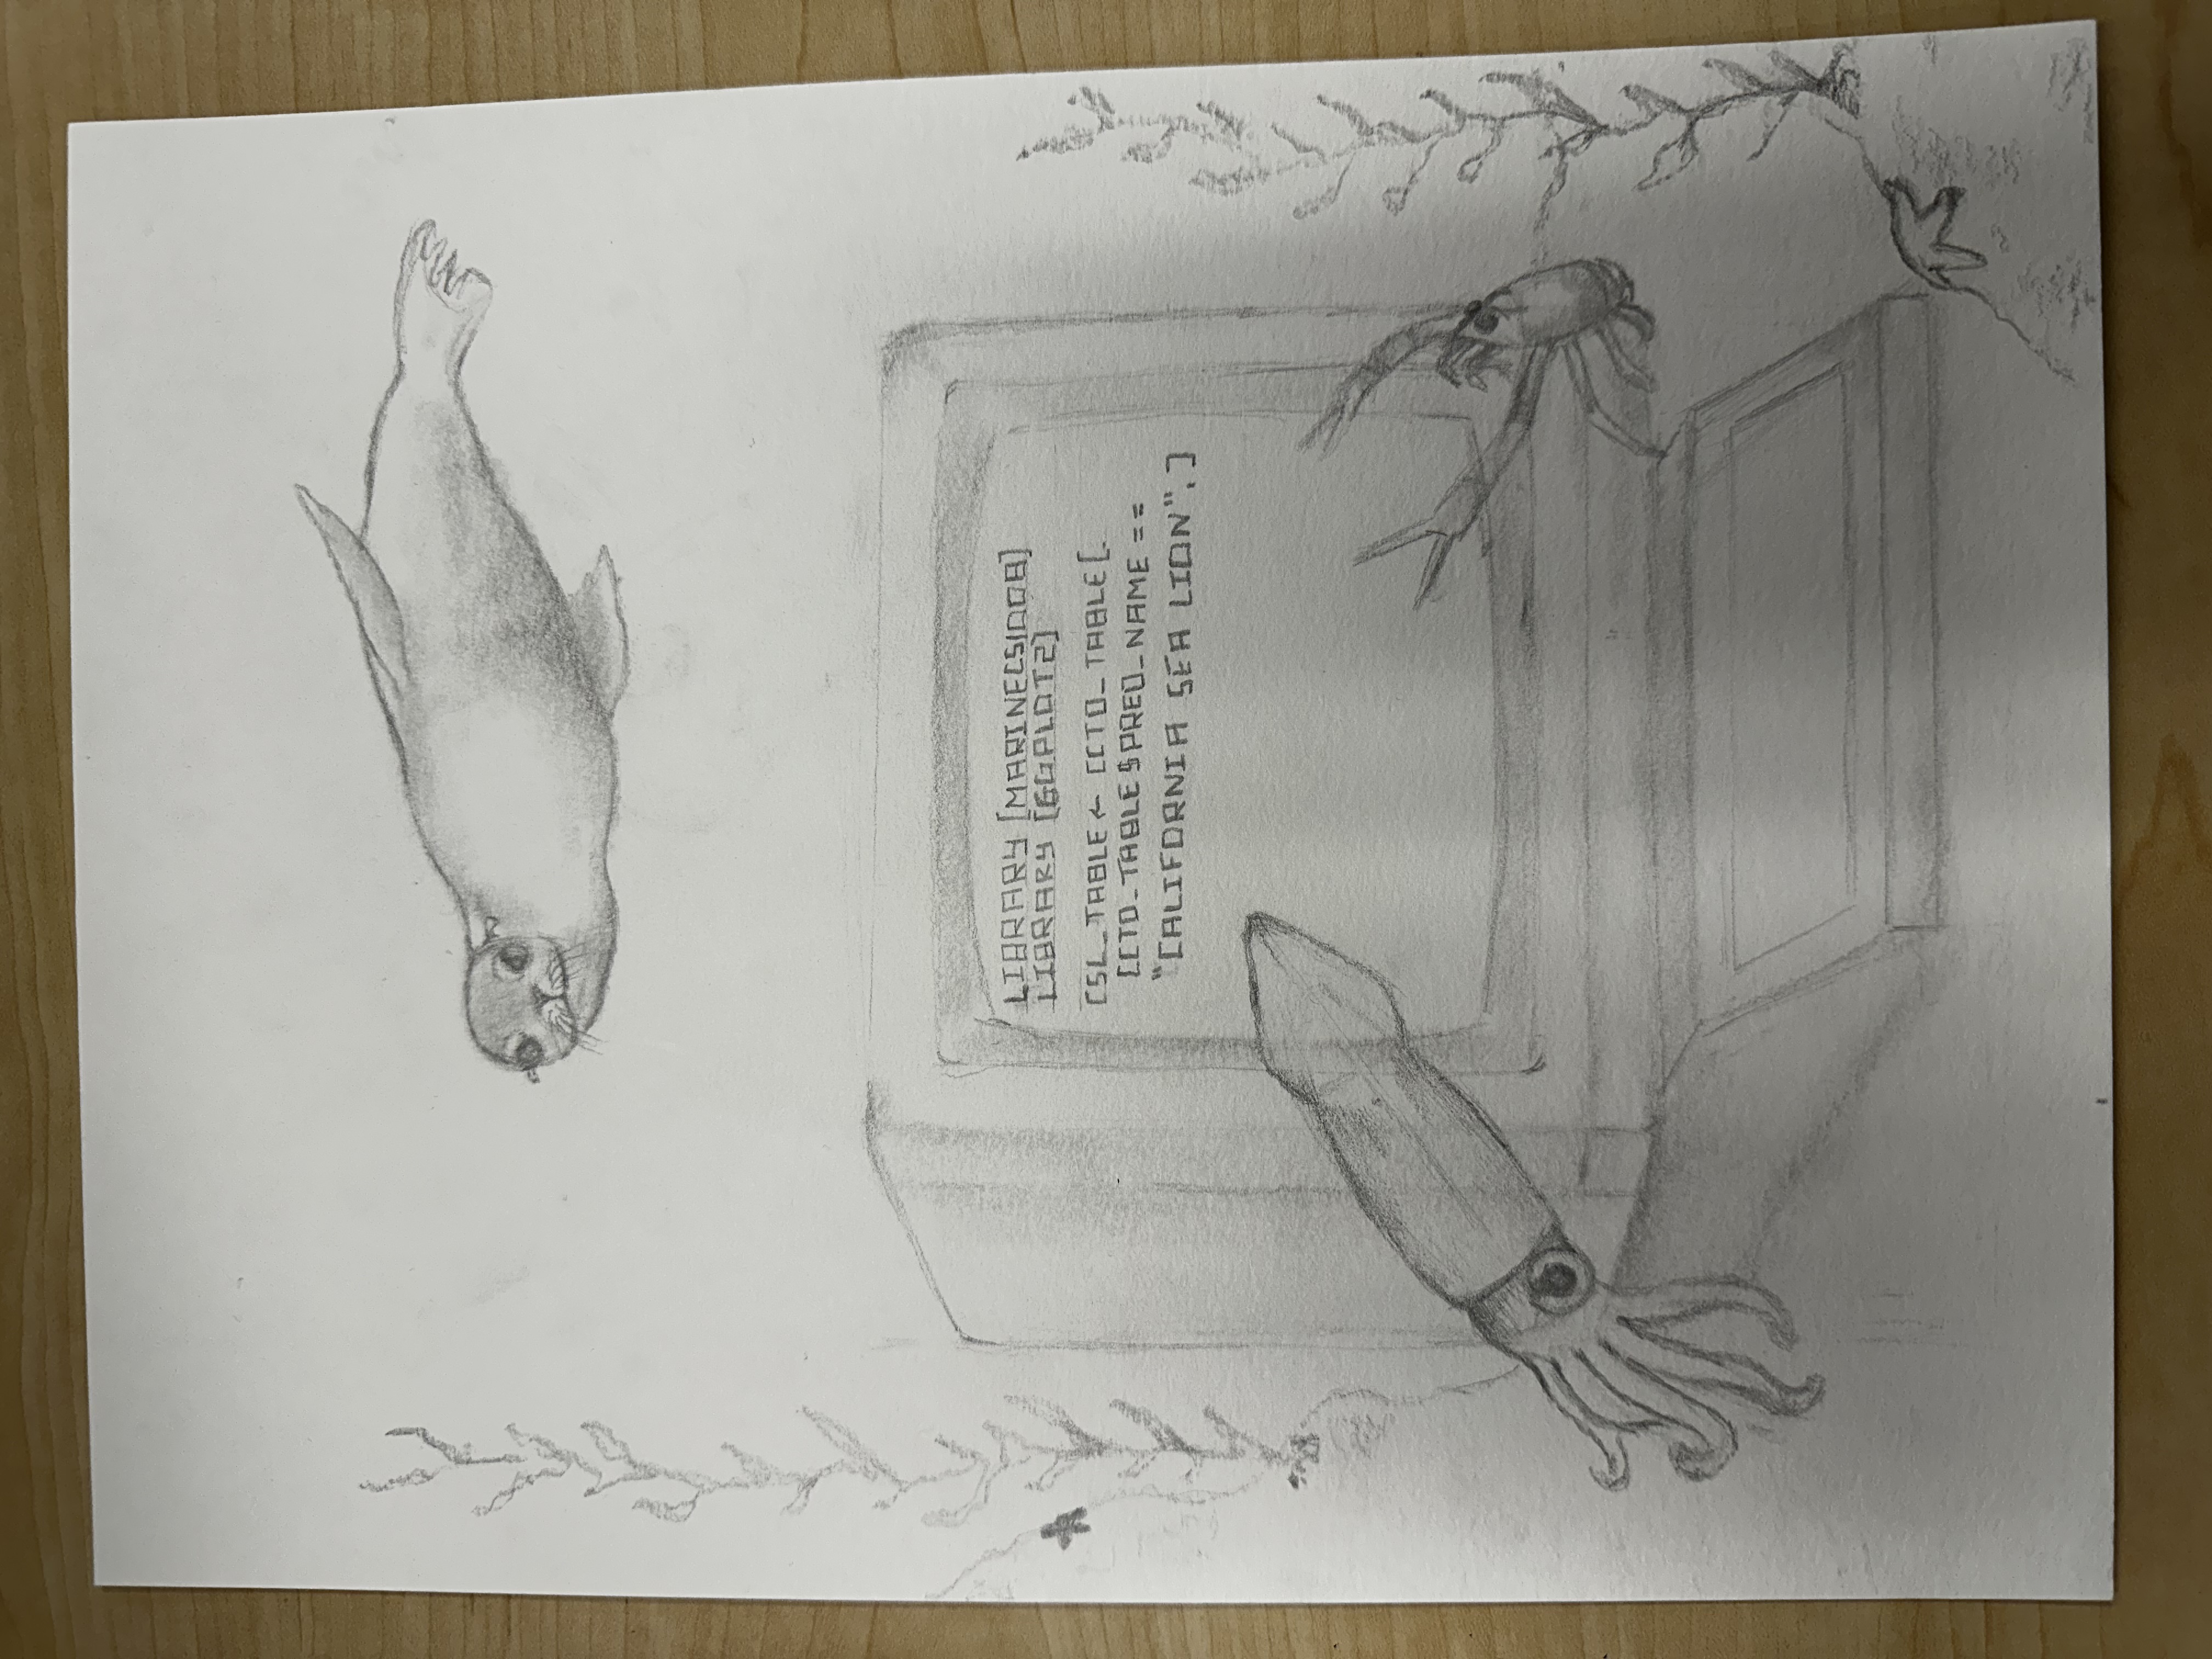 LIBRARY [MARINECS100B]
LIBRARY [GGPLOT2]
CSL_TABLE ← CCTD_TABLE[.
[CCTD_TABLE$PRED_NAME ==
"CALIFORNIA SEA LION",]